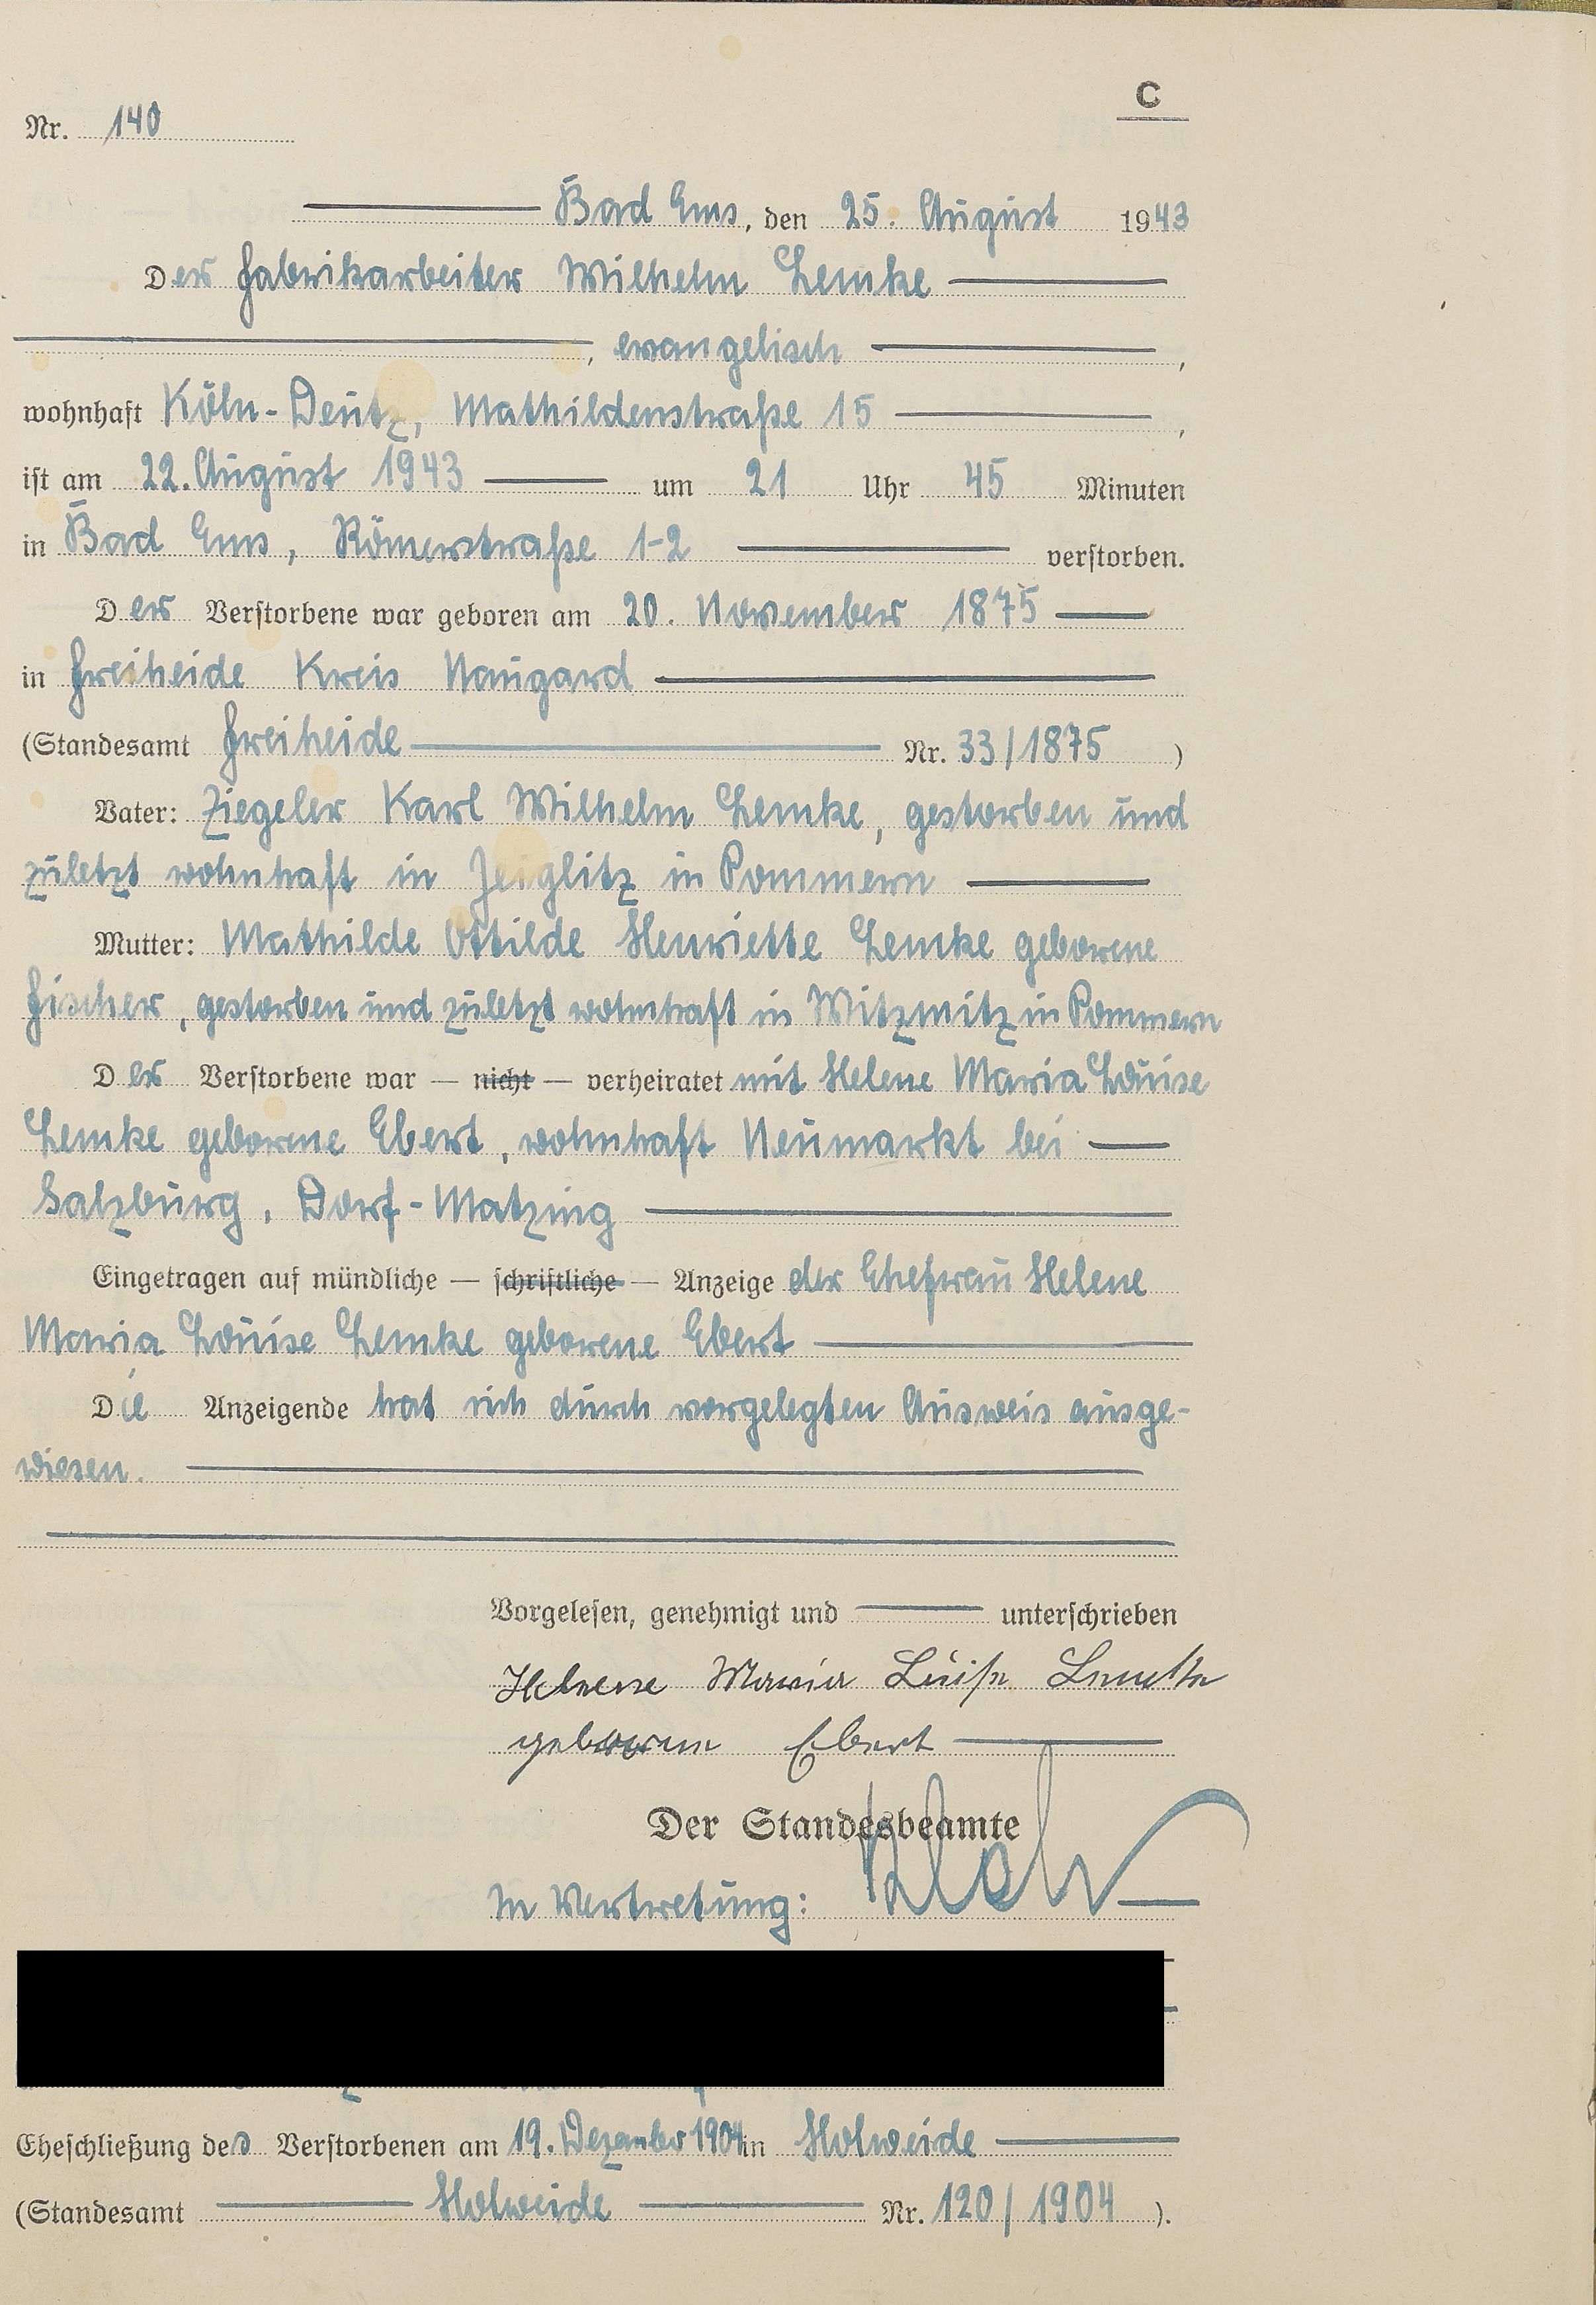 C
Nr. 140
Bad Ems, den 25. August 1943
Der Fabrikarbeiter Wilhelm Lemke
, evangelisch ,
wohnhaft Köln-Deutz, Mathildenstraße 15 ,
ist am 22. August 1943 um 21 Uhr 45 Minuten
in Bad Ems, Römerstraße 1-2 verstorben.
Der Verstorbene war geboren am 20. November 1875
in Freiheide Kreis Naugard
(Standesamt Freiheide Nr. 33/1875 )
Vater: Ziegeler Karl Wilhelm Lemke, gestorben und
zuletzt wohnhaft in Zeiglitz in Pommern
Mutter: Mathilde Ottilde Henriette Lemke geborene
Fischer, gestorben und zuletzt wohnhaft in Witzmitz in Pommern
Der Verstorbene war — nicht — verheiratet mit Helene Maria Louise
Lemke geborene Ebert, wohnhaft Neumarkt bei
Salzburg, Dorf-Matzing
Eingetragen auf mündliche — schriftliche — Anzeige der Ehefrau Helene
Maria Louise Lemke geborene Ebert
Die Anzeigende hat sich durch vorgelegten Ausweis ausge-
wiesen.
Vorgelesen, genehmigt und unterschrieben
Helene Maria Luise Lemke
geborene Ebert
Der Standesbeamte
In Vertretung:
Eheschließung des Verstorbenen am 19. Dezember 1904 in Holweide
(Standesamt Holweide Nr. 120/1904 ).